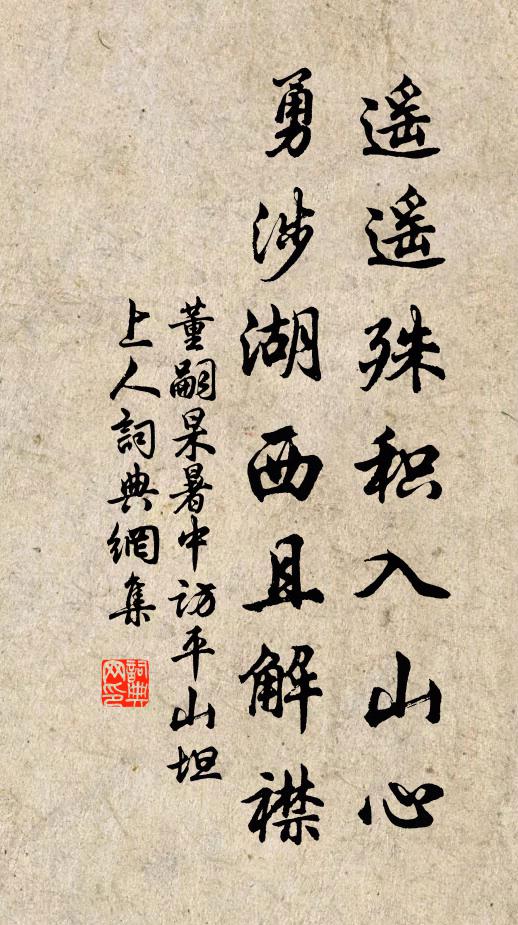 遥遥殊积入山心
勇涉湖西且解襟
董嗣杲暑中访平山坦
上人詞典網集
詞典
网印